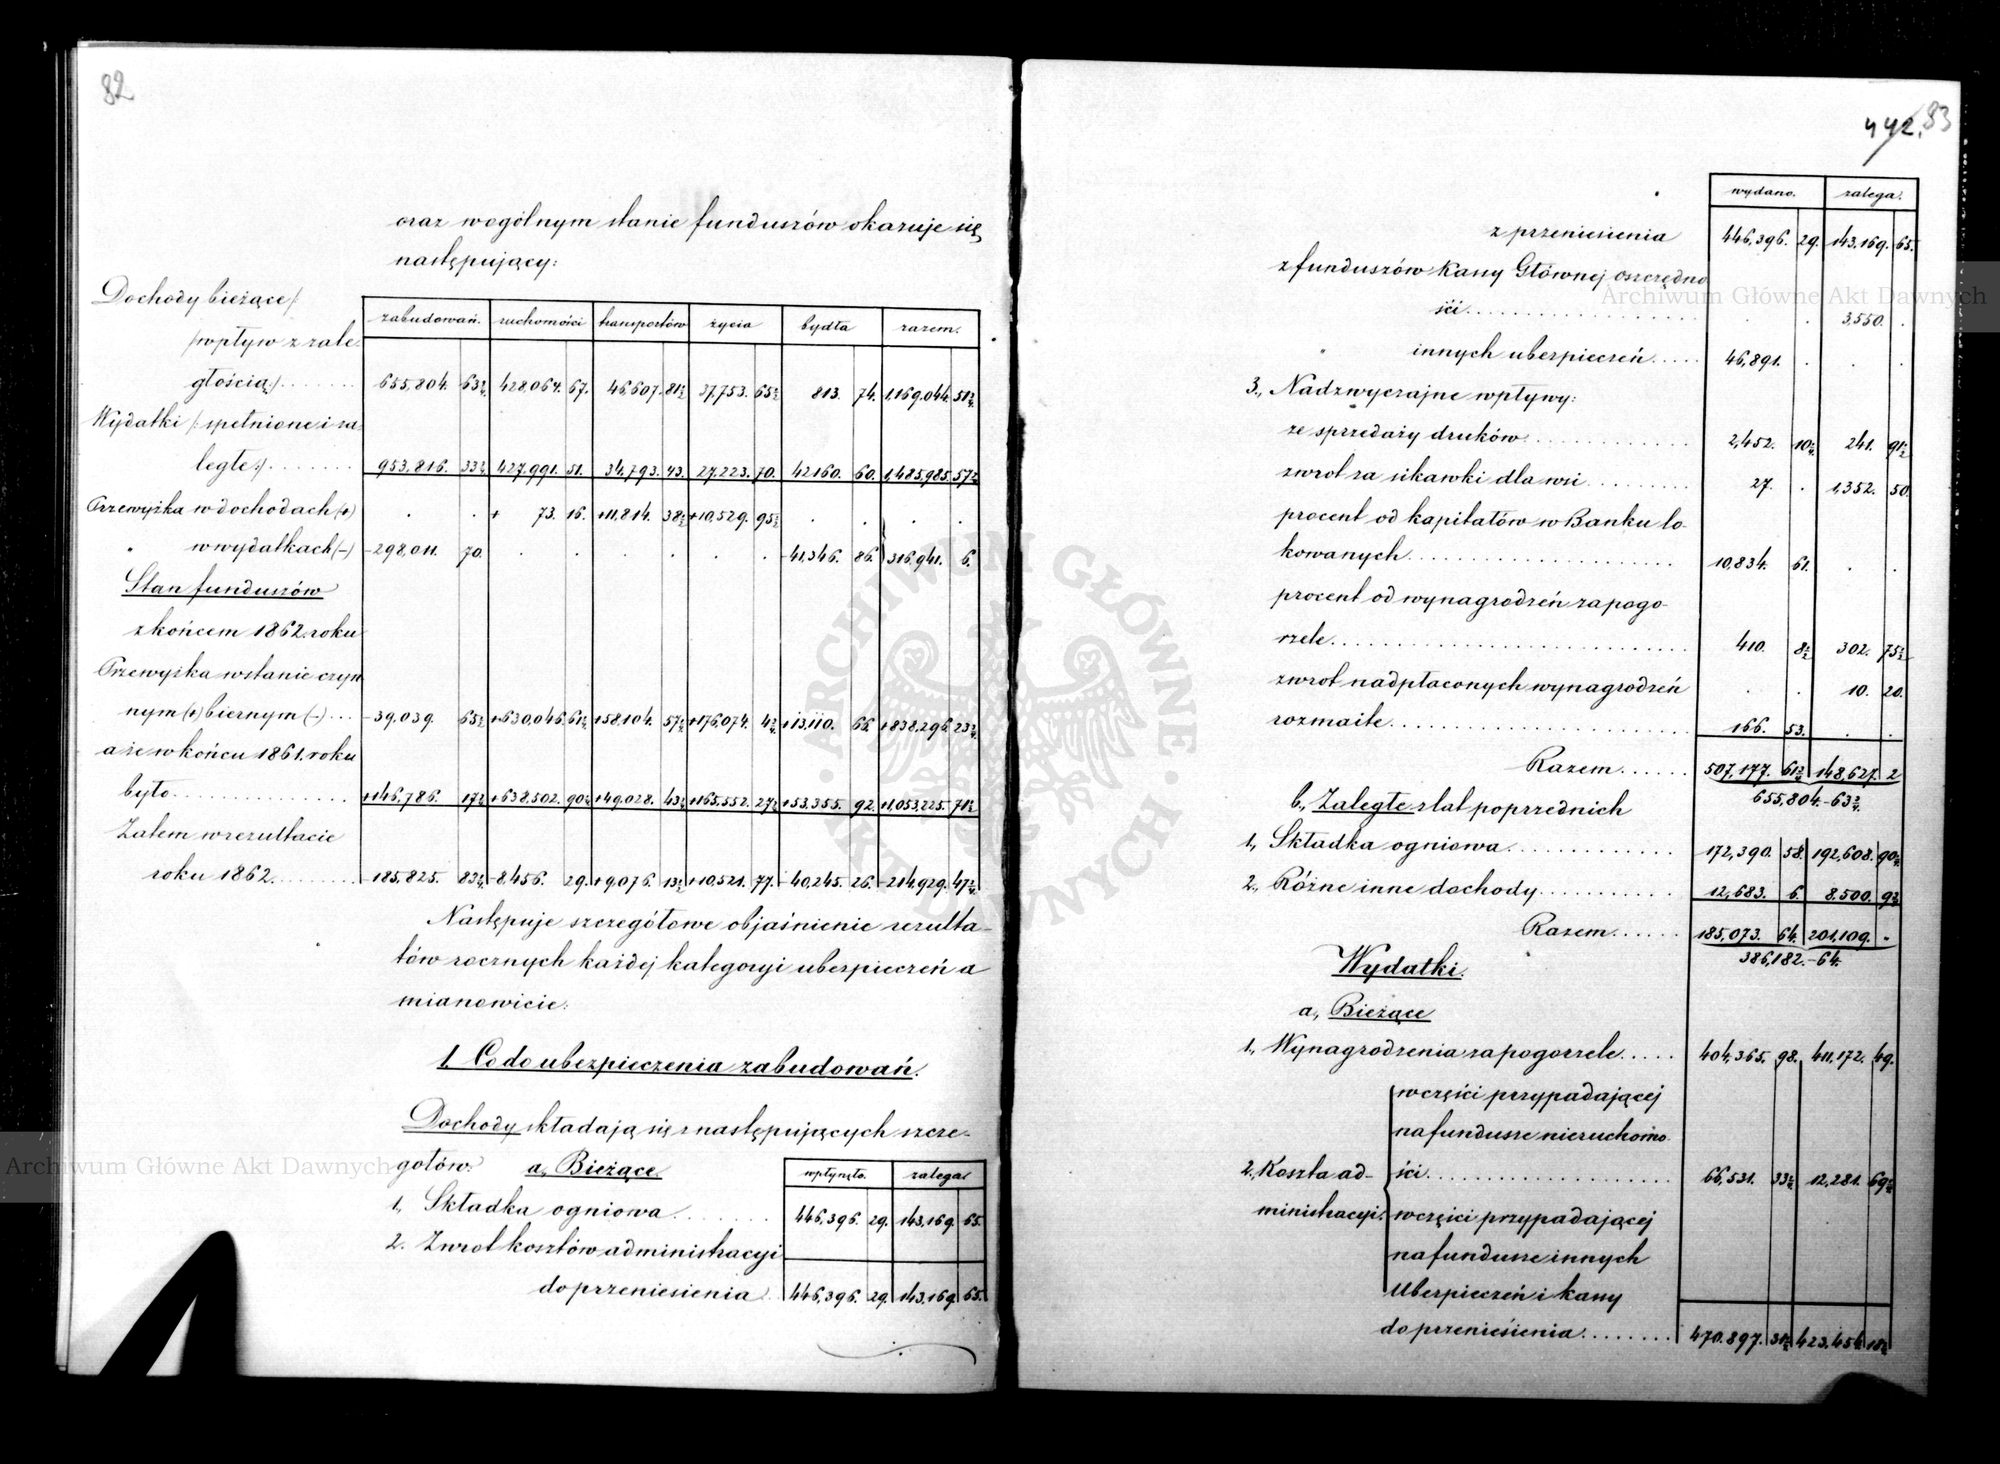 82
oraz w ogólnym stanie funduszów okazuje się
następujący:
zabudowań. ruchomości transportów życia bydła razem.
Dochody bieżące /:
/wpływ z zale-
głością:/ 655,804. 63¾ 428,064. 67. 46,607. 81½ 37,753. 65½ 813. 74. 1,169,044. 51¾
Wydatki /: spełnione i za-
ległe:/ 953,816. 33¾ 427,991. 51. 34,793. 43. 27,223. 70. 42160. 60. 1,485,985. 57¾
Przewyżka w dochodach (+) . . + 73. 16. +11,814. 38½ +10,529. 95½ . . . .
" w wydatkach (-) -298,011. 70. . . . . . . -41,346. 86. 316,941. 6.
Stan funduszów
z końcem 1862. roku
Przewyżka w stanie czyn-
nym (+) biernym (-) -39,039. 65½ +630,046. 61¾ +58,104. 57¼ +176,074. 4¾ +13,110. 66. +838,296. 23¾
a że w końcu 1861. roku
było +146,786. 17¾ +638,502. 90¾ +49,028. 43¾ +165,552. 27¾ +53,355. 92. +1,053,225. 71¾
Zatem w rezultacie
roku 1862. -185,825. 83¼ -8,456. 29. +9,076. 13½ +10,521. 77. -40,245. 26. -214,929. 47¾
Następuje szczegółowe objaśnienie rezulta-
tów rocznych każdej kategoryi ubezpieczeń a
mianowicie:
1. Co do ubezpieczenia zabudowań.
Dochody składają się z następujących szcze-
gółów: a, Bieżące
wpłynęło. zalega
1, Składka ogniowa 446,396. 29. 143,169. 65.
2. Zwrot kosztów administracyi
do przeniesienia 446,396. 29. 143,169 65.
442. 83
wydano. zalega.
z przeniesienia 446,396. 29. 143,169. 65.
z funduszów Kassy Głównej oszczędno-
ści . . 3,550. .
innych ubezpieczeń 46,891. . . .
3., Nadzwyczajne wpływy:
ze sprzedaży druków 2,452. 10¾ 241. 91½
zwrot za sikawki dla wsi 27. . 1,352. 50.
procent od kapitałów w Banku lo-
kowanych 10,834. 61. . .
procent od wynagrodzeń za pogo-
rzele 410. 8½ 302. 75½
zwrot nadpłaconych wynagrodzeń . . 10. 20.
rozmaite 166. 53. . .
Razem 507,177. 61¾ 148,627. 2
655,804.-63¾
b, Zaległe z lat poprzednich
1, Składka ogniowa 172,390. 58. 192,608. 90¾
2., Różne inne dochody 12,683. 6. 8,500. 9¾
Razem 185,073. 64. 201,109. "
386,182.-64.
Wydatki.
a, Bieżące
1, Wynagrodzenia za pogorzele 404,365. 98. 411,172. 49.
w części przypadającej
na fundusze nieruchomo-
2, Koszta ad- ści 66,531. 33¾ 12,281. 69¾
ministracyi w części przypadającej
na fundusze innych
Ubezpieczeń i kassy
do przeniesienia 470,897. 31¾ 423,454. 18¾
Archiwum Główne Akt Dawnych
Archiwum Główne Akt Dawnych
ARCHIWUM GŁÓWNE AKT DAWNYCH